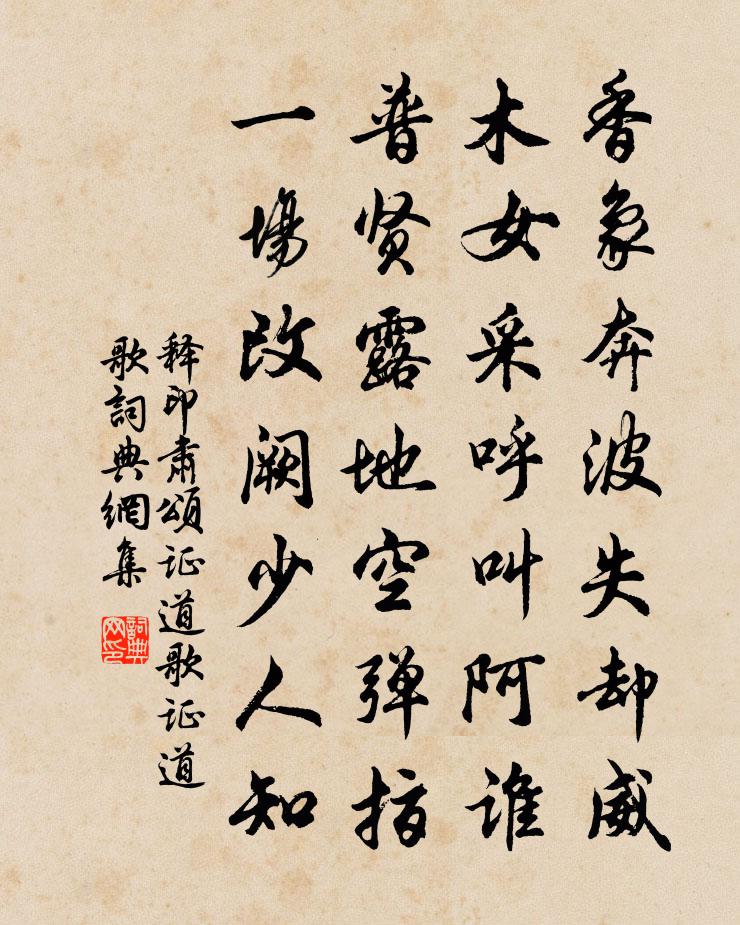 香象奔波失却威
木女采呼叫阿谁
普贤露地空弹指
一場改阙少人知
释印肃頌证道歌证道
歌詞典網集
詞典
网印